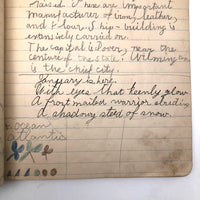 raised. There are important
manufacturers of iron, leather,
and flour. Ship-building is
extensively carried on.
The capital is Dover, near the
center of the state. Wilmington
is the chief city.
January is here.
With eyes that keenly glow
A frost mailed warrior striding
A shadowy steed of snow.
ocean
atlantic